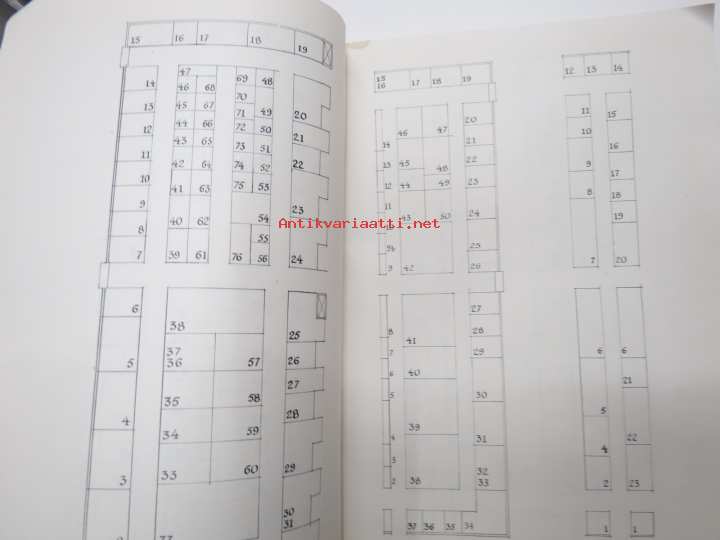 15 16 17 18 19
47
14 46 68 69 48
70
13 45 67 71 49 20
12 44 66 72 50
43 65 73 51 21
11 42 64 74 52 22
10 41 63 75 53
9 40 62 54 23
8 55
7 39 61 76 56 24
6 38 25
37
5 36 57 26
27
35 58 28
4 34 59
3 33 60 29
30
31
15 16 17 18 19
14 46 47 20
21
13 45 22
12 44 48 49 23
11 43 50 24
25
9 42 26
27
8 28
7 41 29
6 40
5 30
4 39 31
3 32
2 38 33
37 36 35 34
12 13 14
11 15
10 16
9 17
8 18
19
7 20
6 6
21
5
4 22
2 23
1 1
Antikvariaatti.net